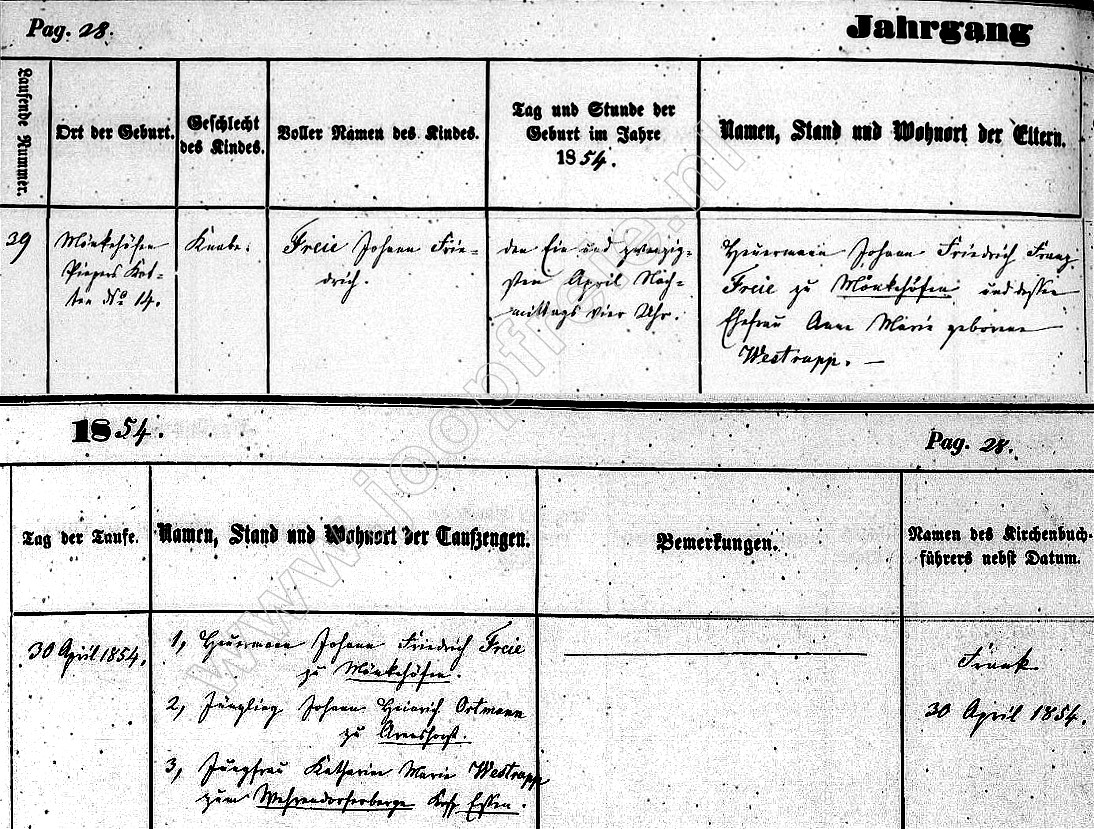 Pag. 28.
Jahrgang
Laufende Nummer.
Ort der Geburt.
Geschlecht
des Kindes.
Voller Namen des Kindes.
Tag und Stunde der
Geburt im Jahre
1854.
Namen, Stand und Wohnort der Eltern.
29
Mönkehöfen
Piepers Kot-
ten No 14.
Knabe.
Freie Johann Frie-
drich.
den Ein und zwanzig-
sten April Nach-
mittags vier Uhr.
Heuermann Johann Friedrich Franz
Freie zu Mönkehöfen und dessen
Ehefrau Anne Marie geborene
Westrupp. —
1854.
Pag. 28.
Tag der Taufe.
Namen, Stand und Wohnort der Taufzeugen.
Bemerkungen.
Namen des Kirchenbuch-
führers nebst Datum.
30 April 1854.
1, Heuermann Johann Friedrich Freie
zu Mönkehöfen.
2, Jüngling Johann Heinrich Ortmann
zu Arenshorst.
3, Jungfrau Katharine Marie Westrupp
zum Wehrendorferberge Kirchsp. Essen.
Frank
30 April 1854.
www.joopfreie.nl